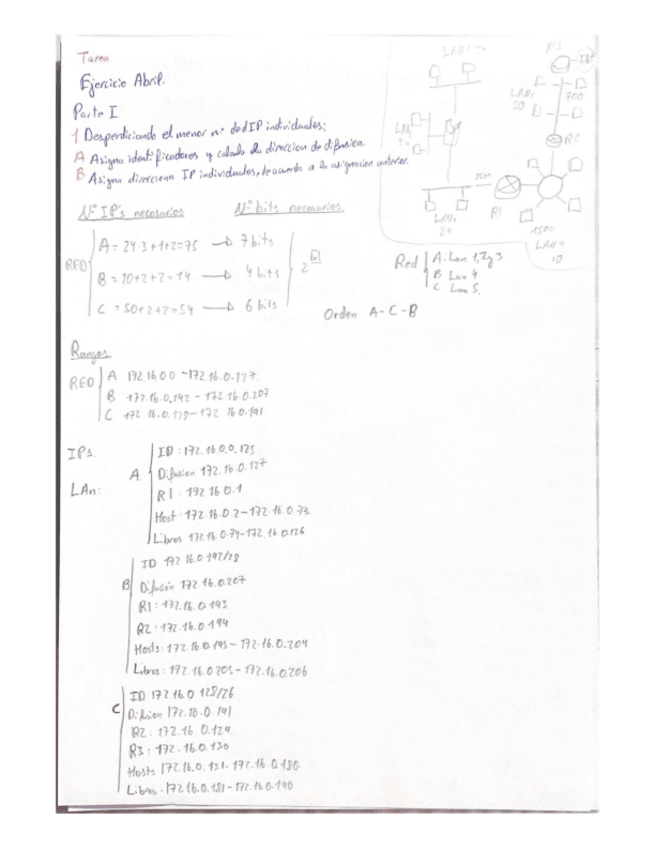 Tarea
Ejercicio Abril.
Parte I
1 Desperdiciando el menor nº de dIP individuales;
A Asigna identificadores y calcula la direccion de difusion.
B Asigna direcciona IP individules, de acuerdo a la asignacion anterior.
LAN 1 24
LAN 2 24
LAN3 24
R1
R2
R3
LAN5 50
700
1500
LAN 4 10
Red A: Lan 1,2y3
B Lan 4
C Lan 5.
Nº IP's necesarios Nº bits necesarios
RED
A = 24·3+1+2=75 → 7 bits
B = 10+2+2=14 → 4 bits
C = 50+2+2=54 → 6 bits
Orden A-C-B
Rangos
RED
A 172 16 0 0 - 172.16.0.127
B 172.16.0.192 - 172.16.0.207
C 172.16.0.128 - 172 16 0.191
IPs.
LAn:
A.
ID: 172.16.0.0.125
Difusion 172.16.0.127
R1: 192 16 0.1
Host: 172.16.0.2-172.16.0.73.
Libres 172.16.0.74-172.16.0.126
B
ID 172 16.0.192/28
Difusión 172.16.0.207
R1: 172.16.0.193
R2: 172.16.0.194
Hosts: 172.16.0.195 - 172.16.0.204
Libres: 172.16.0.205 - 172.16.0.206
C
ID 172.16.0.128/26
Difusion 172.16.0.191
R2: 172.16.0.129.
R3: 172.16.0.130
Hosts 172.16.0.131-172.16.0.180
Libres: 172.16.0.181-172.16.0.190